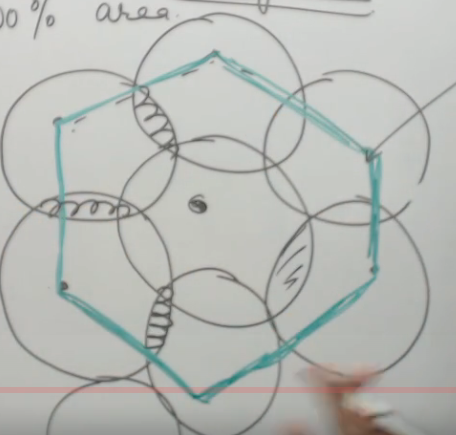 00% area.